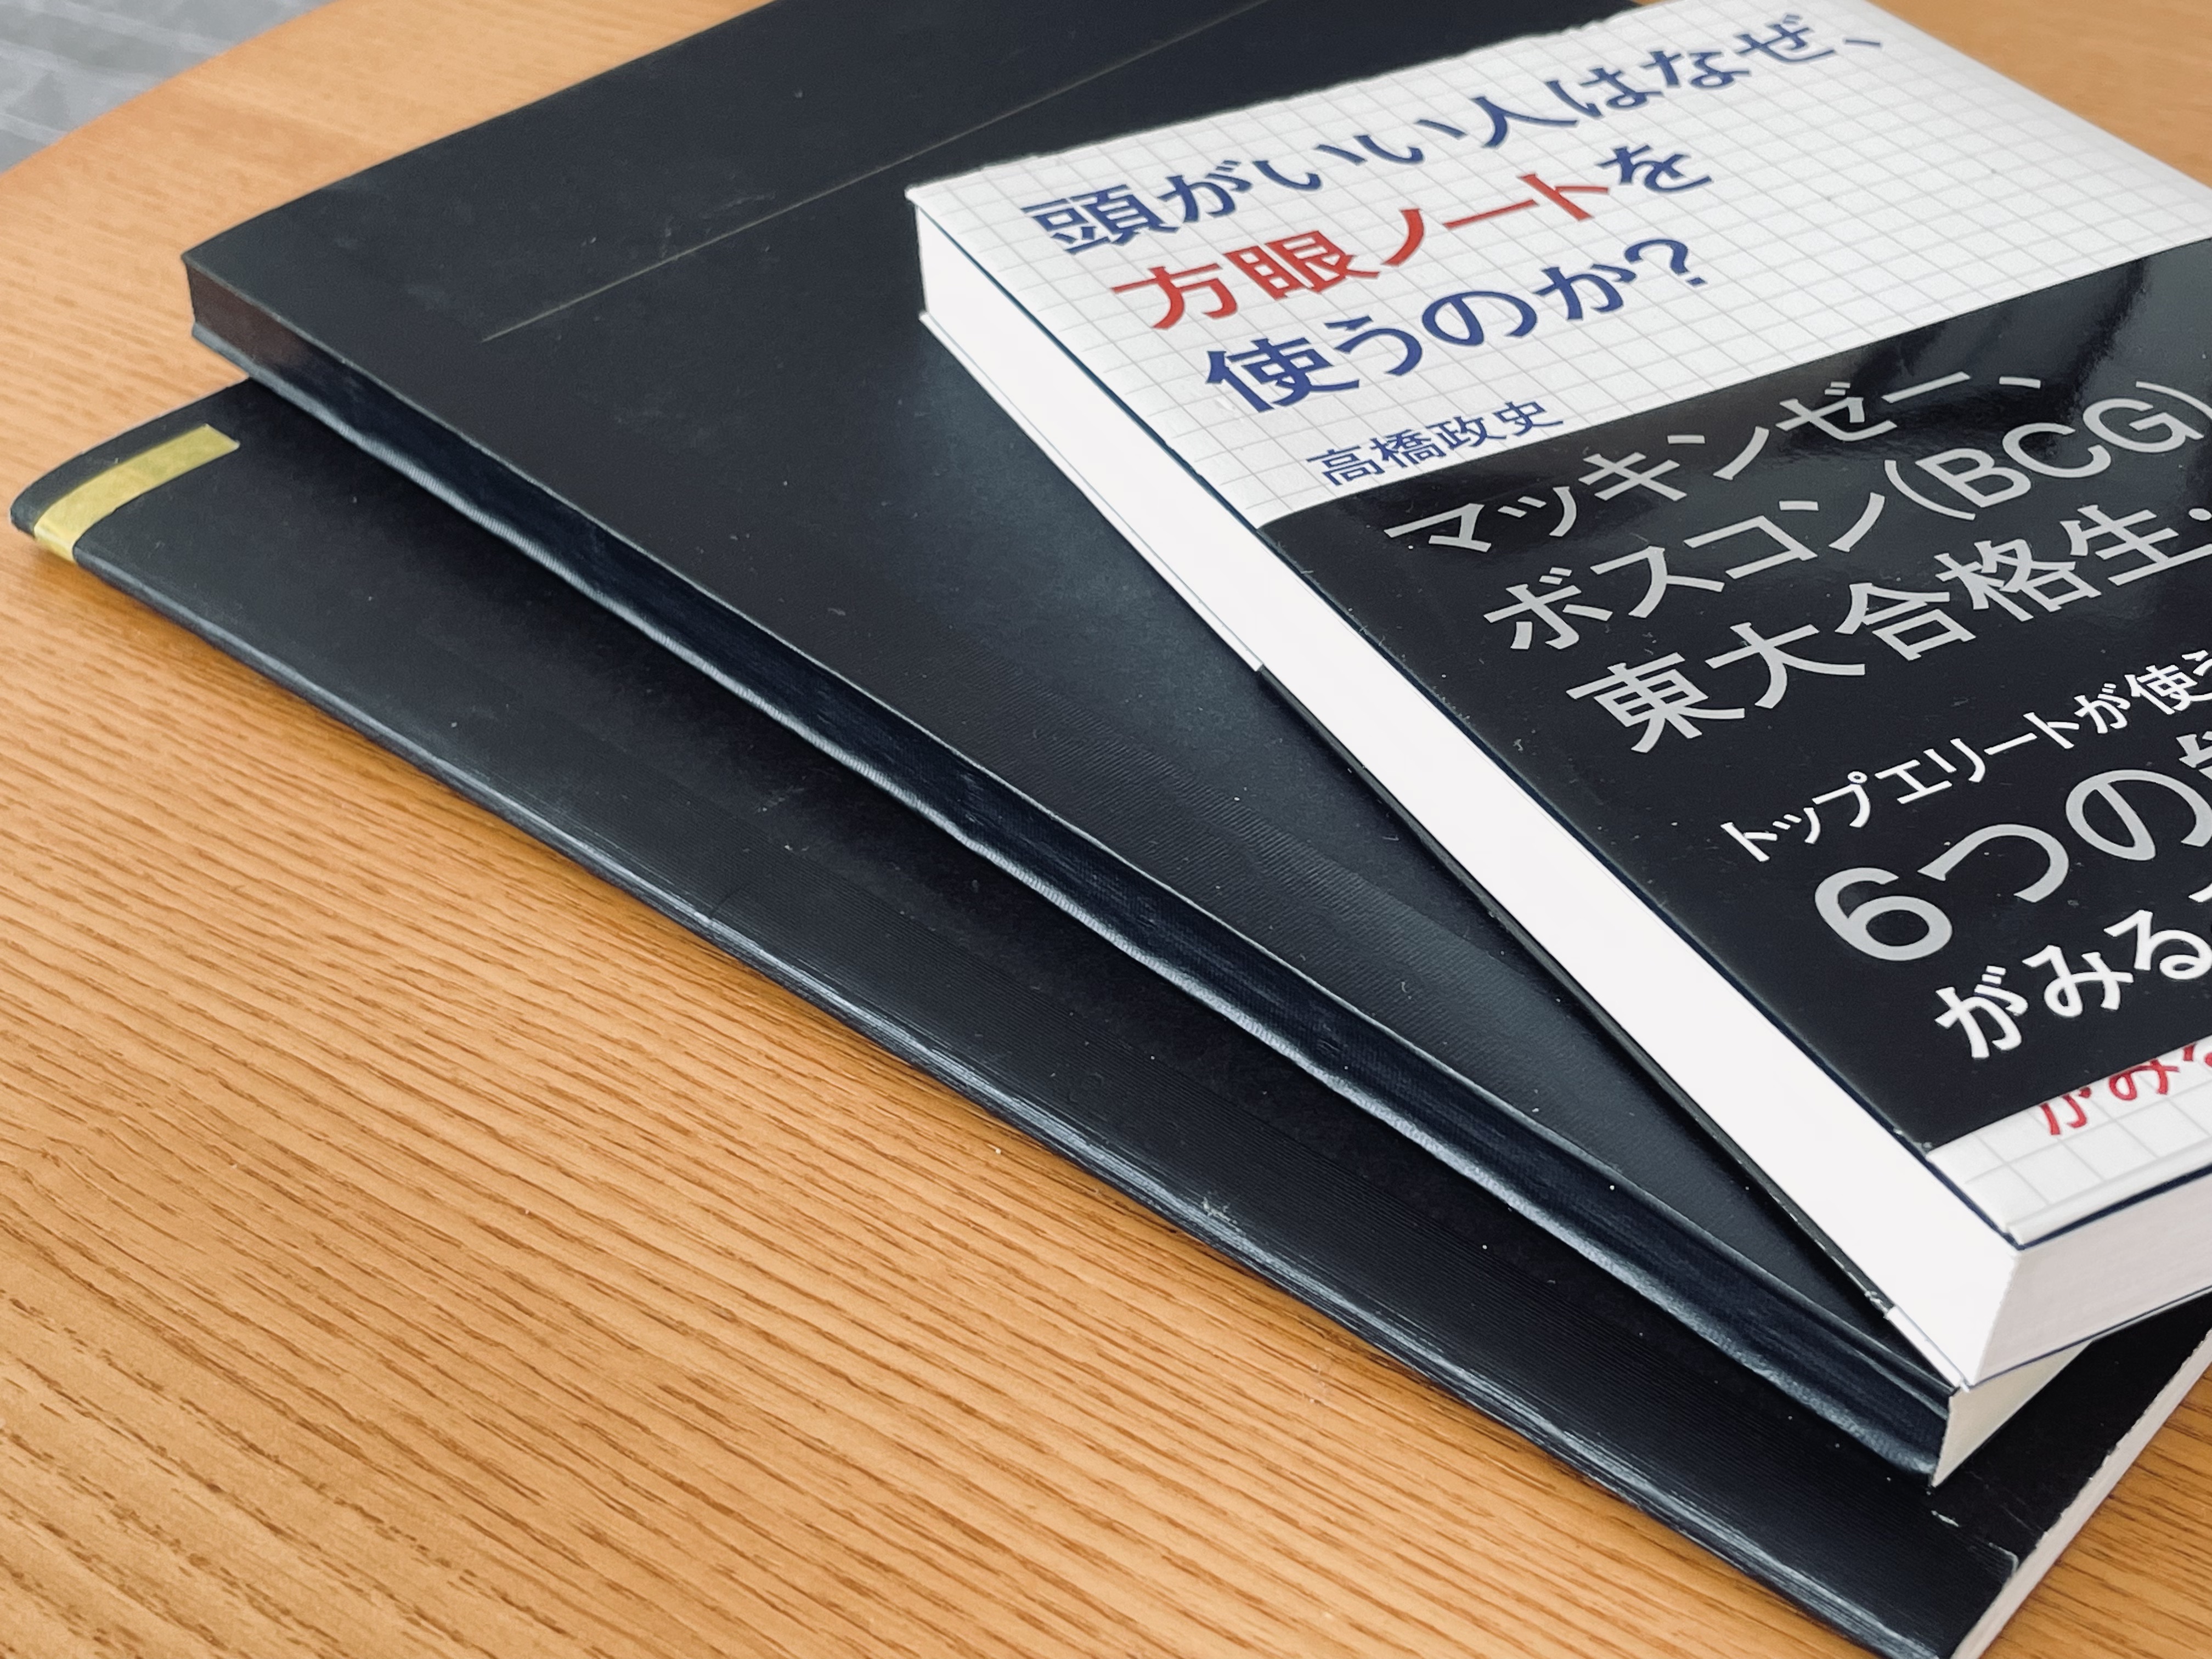 頭がいい人はなぜ、
方眼ノートを
使うのか?
高橋政史
マッキンゼー、
ボスコン(BCG)
東大合格生・
トップエリートが使う
6つの
がみる
がみる